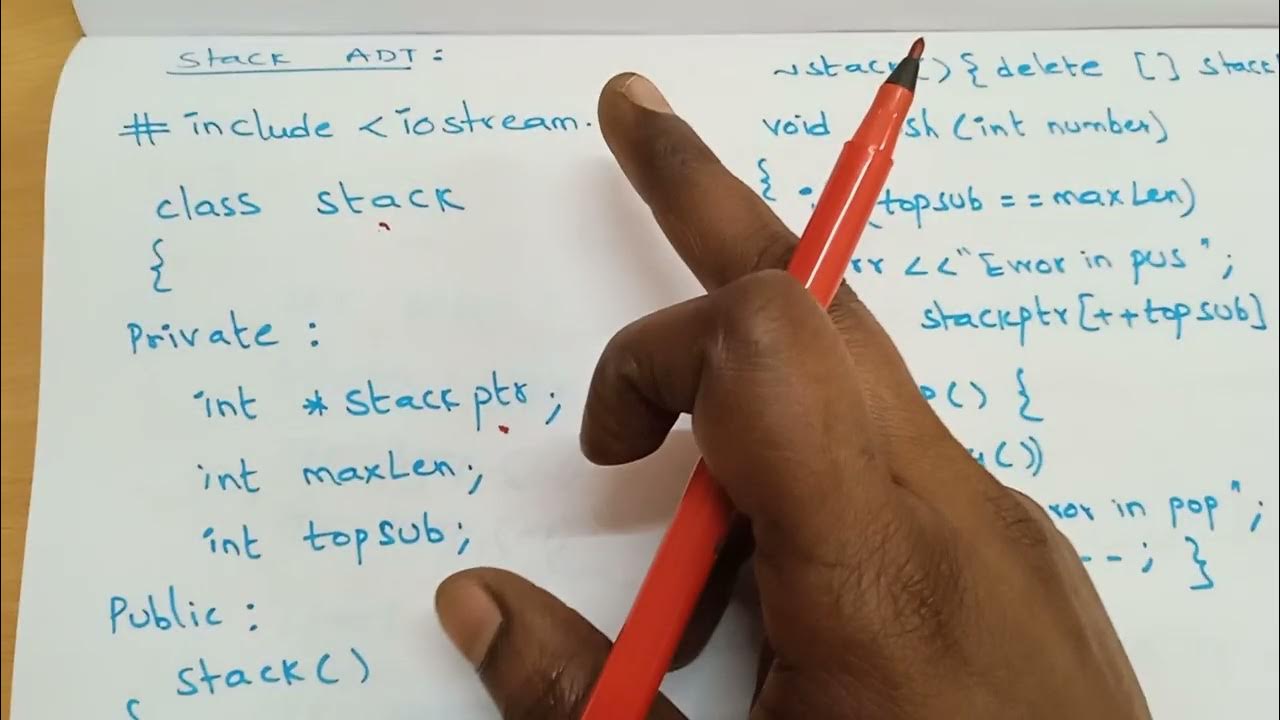 Stack ADT :
# include <iostream.
class stack
{
Private :
int *stackptr ;
int maxLen ;
int topsub ;
Public :
stack ( )
{
~stack() { delete [ ] stack
void sh (int number)
{
(topsub == maxLen)
rr << "Error in pus " ;
stackptr [++topsub]
p( ) {
y( ))
ror in pop" ;
-- ; }